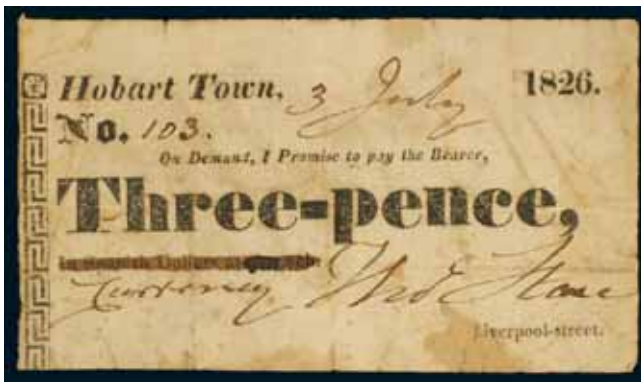 Hobart Town, 3 July 1826.
No. 103.
On Demand, I Promise to pay the Bearer,
Three-pence,
in Spanish Dollars at
Currency Thos. Stone
Liverpool-street.